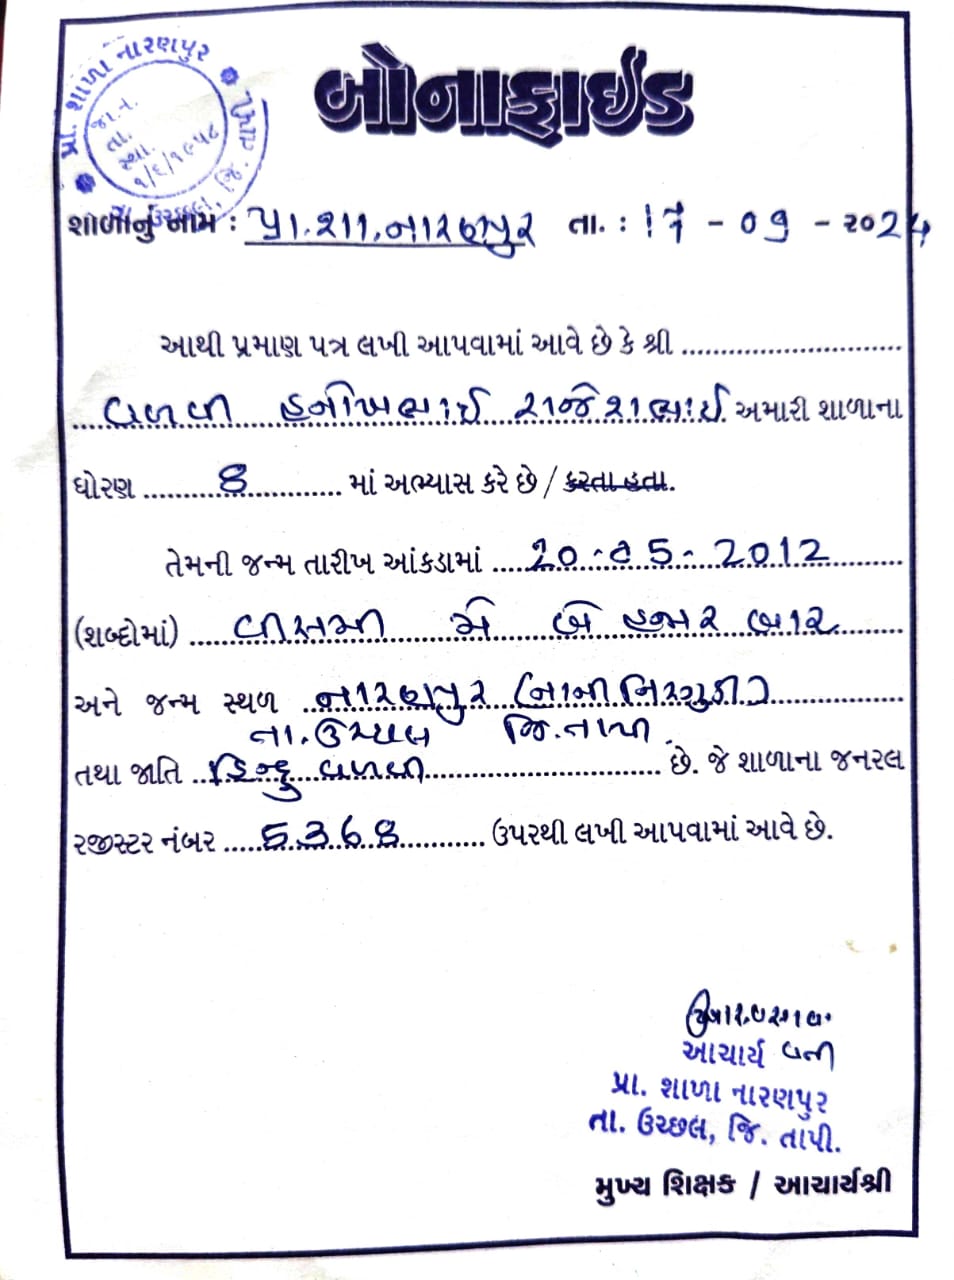 પ્રા. શાળા નારણપુર
જા.નં.
તા.
સ્થા.
૧/૬/૧૯૫૮
તા. ઉચ્છલ, જિ. તાપી
બોનાફાઈડ
શાળાનું નામ : પ્રા.શા.નારણપુર તા. : 17 - 09 - ૨૦24
આથી પ્રમાણ પત્ર લખી આપવામાં આવે છે કે શ્રી
વળવી રાજેશભાઈ અમારી શાળાના
ધોરણ 8 માં અભ્યાસ કરે છે / કરતા હતા.
તેમની જન્મ તારીખ આંકડામાં 20 - 05 - 2012
(શબ્દોમાં) વીસમી મે બે હજાર બાર
અને જન્મ સ્થળ નારણપુર
તા. ઉચ્છલ જિ. તાપી
તથા જાતિ હિન્દુ વળવી છે. જે શાળાના જનરલ
રજીસ્ટર નંબર 5368 ઉપરથી લખી આપવામાં આવે છે.
આચાર્ય વતી
પ્રા. શાળા નારણપુર
તા. ઉચ્છલ, જિ. તાપી.
મુખ્ય શિક્ષક / આચાર્યશ્રી